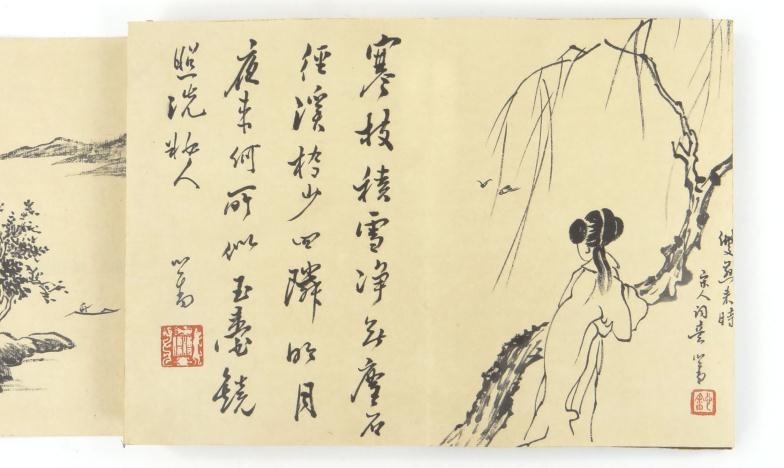 寒枝積雪净無塵石
徑溪橋少四隣明月
夜來何所似玉臺鏡
照洗粧人
心畬
雙燕來時
宋人詞意 心畬